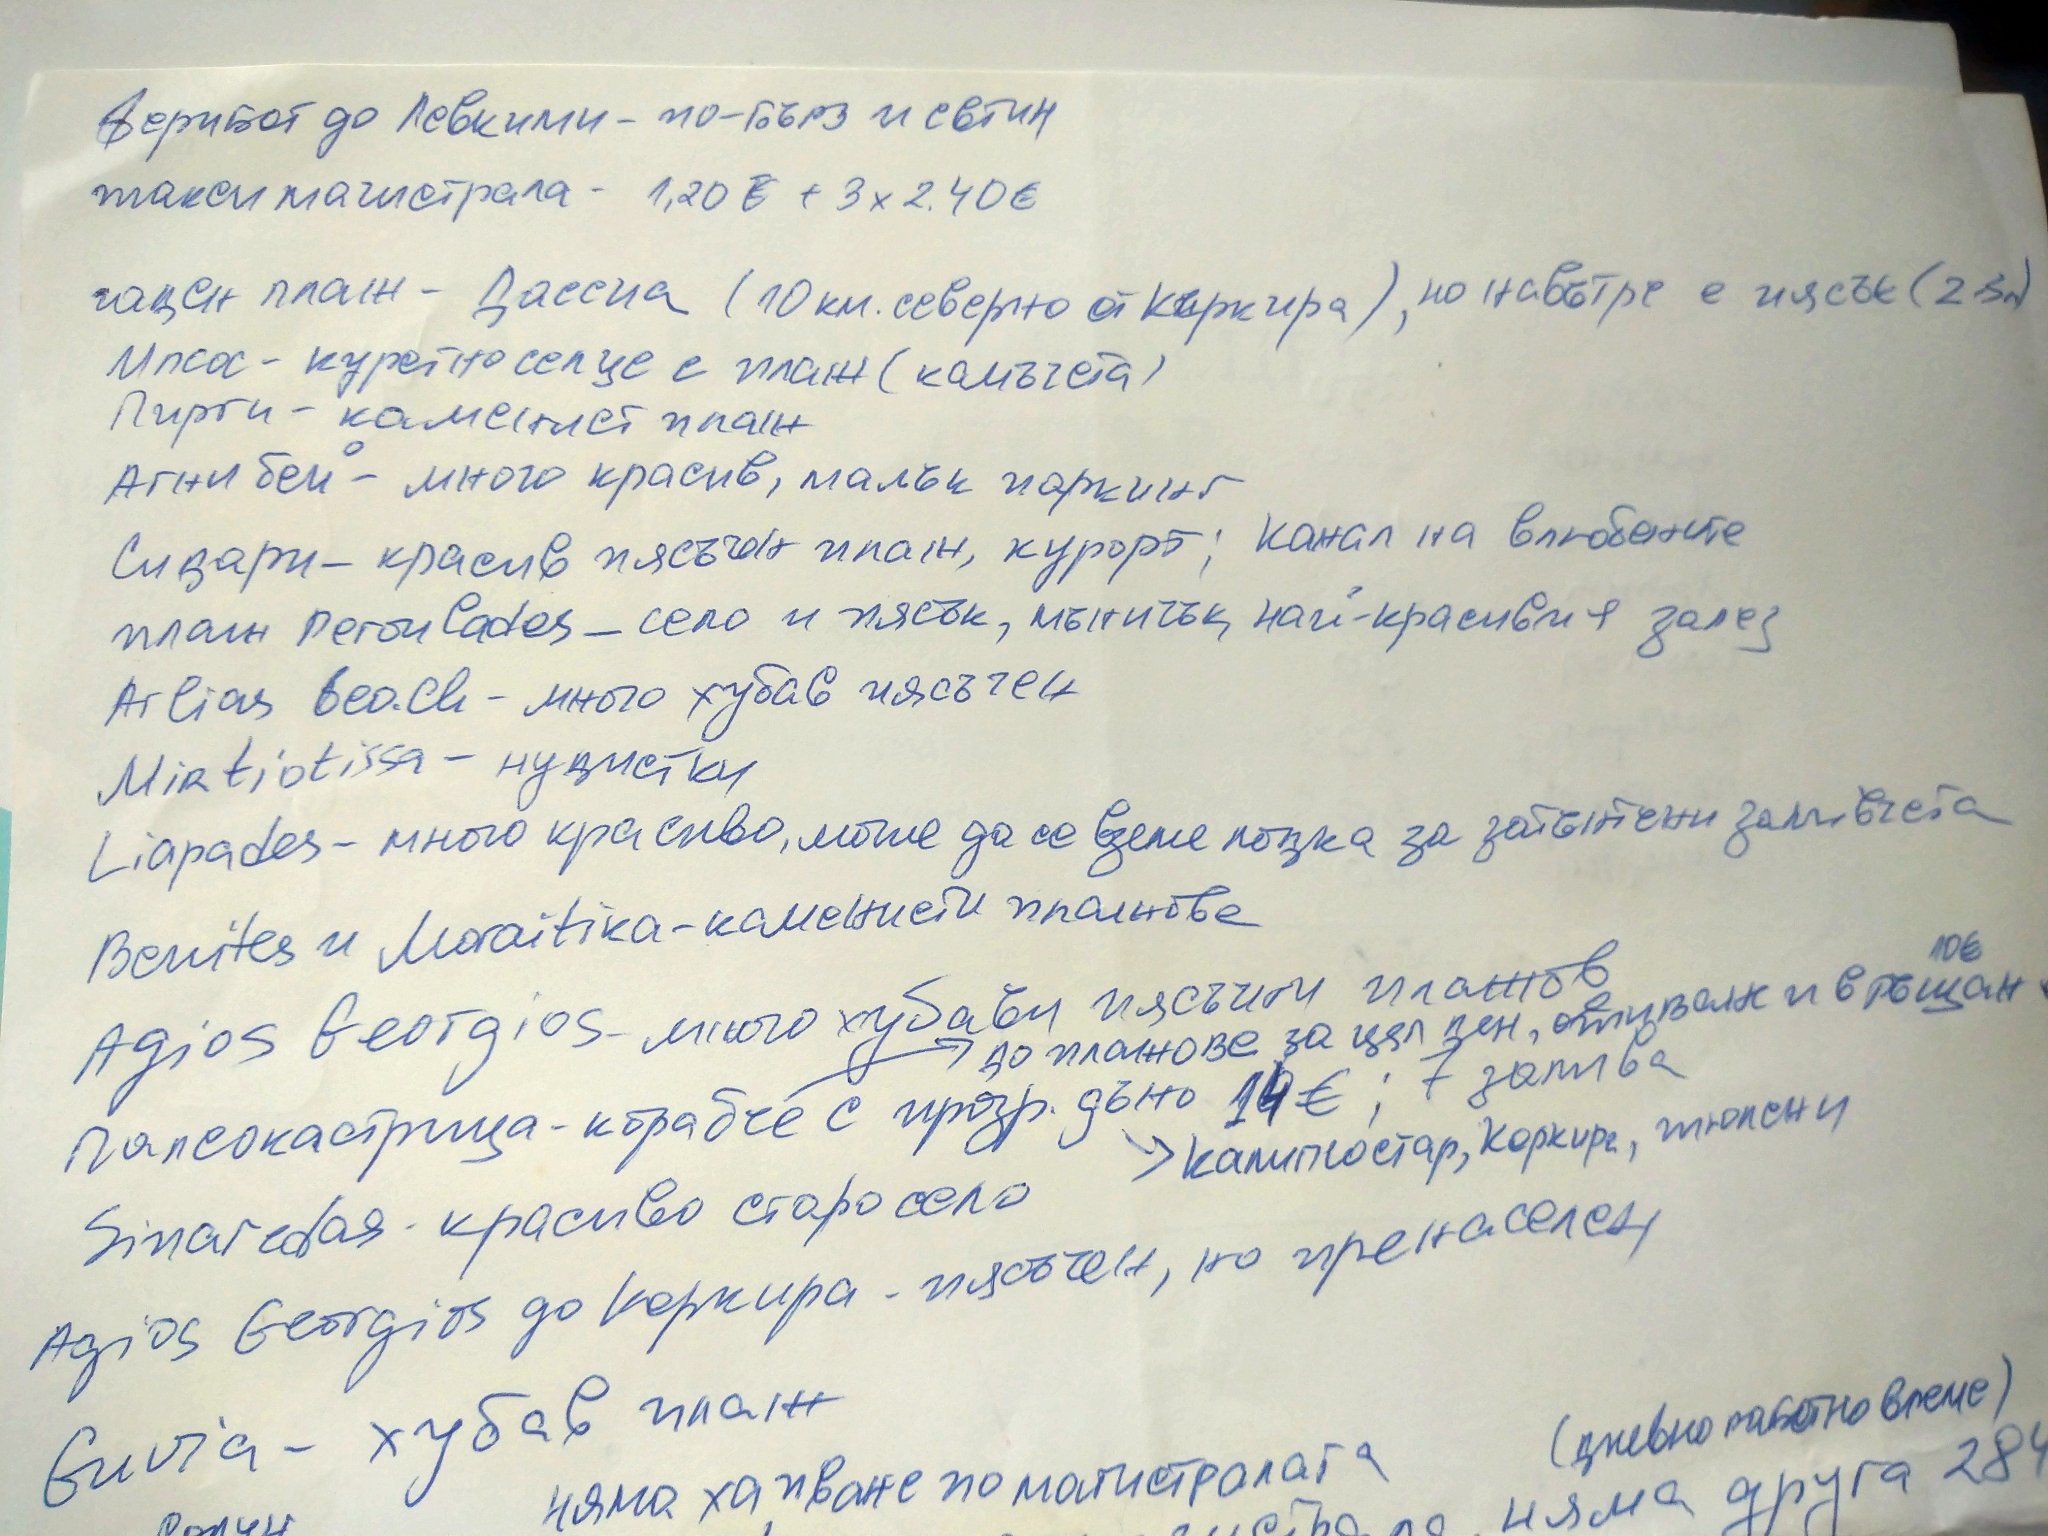 Ферибот до Левкими - по-бърз и евтин
такси магистрала - 1,20 € + 3 x 2.40 €
плаж - Дассиа (10 км. северно от Керкира), но навътре е пясък
Ипсос - курортно селце с плаж (камъчета)
Пирги - каменист плаж
Агни бей - много красив, малък паркинг
Сидари - красив пясъчен плаж, курорт; Канал на влюбените
плаж Peroulades - село и пясък, мъничък, най-красивия залез
Arlias beach - много хубав пясъчен
Mirtiotissa - нудистки
Liapades - много красиво, може да се вземе лодка за заливчета
Benites и Moraitika - каменисти плажове
10€
Agios Georgios - много хубави пясъчни плажов
→ до плажове за цял ден, отиване и връщан
Палеокастрица - корабче с прозр. дъно 14 € ; 7 залива
→ Калипсо стар, Коркира, тюлени
Sinaredas - красиво старо село
Agios Georgios до Коркира - пясъчен, но пренаселен
- хубав плаж
(дневно работно време)
няма хапване по магистралата
няма друга 284